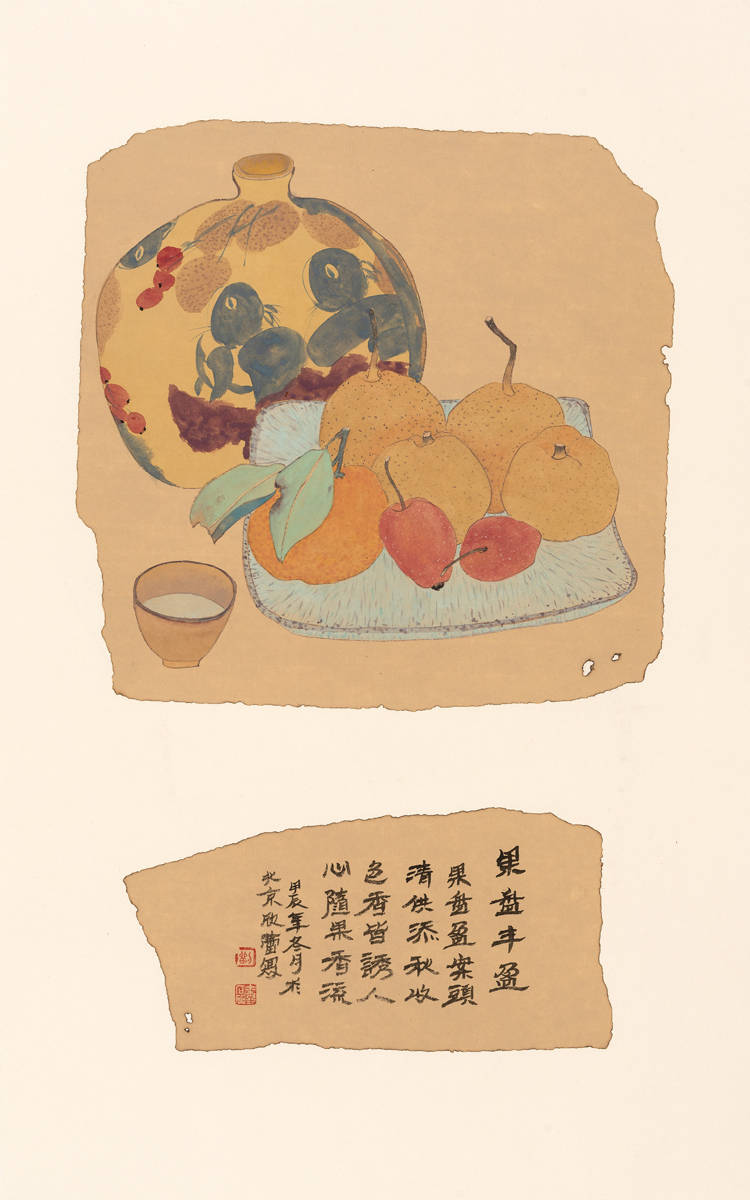 果盘丰盈
果盘盈案頭
清供添秋收
色香皆誘人
心隨果香流
甲辰年冬月於
北京欣